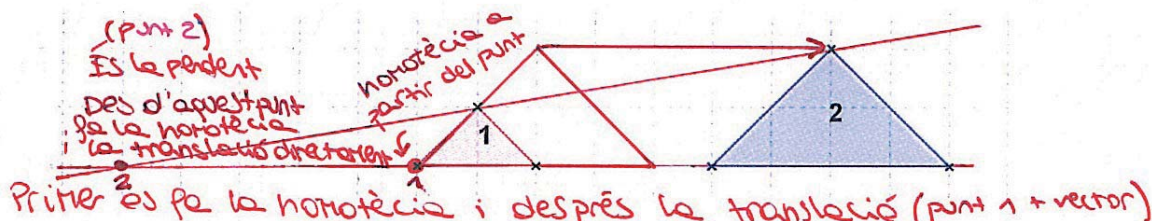 (punt 2)
És la pendent
Des d'aquest punt
fa la homotècia
i la translació directament
homotècia a
partir del punt
1
2
2
1
Primer es fa la homotècia i després la translació (punt 1 + vector)